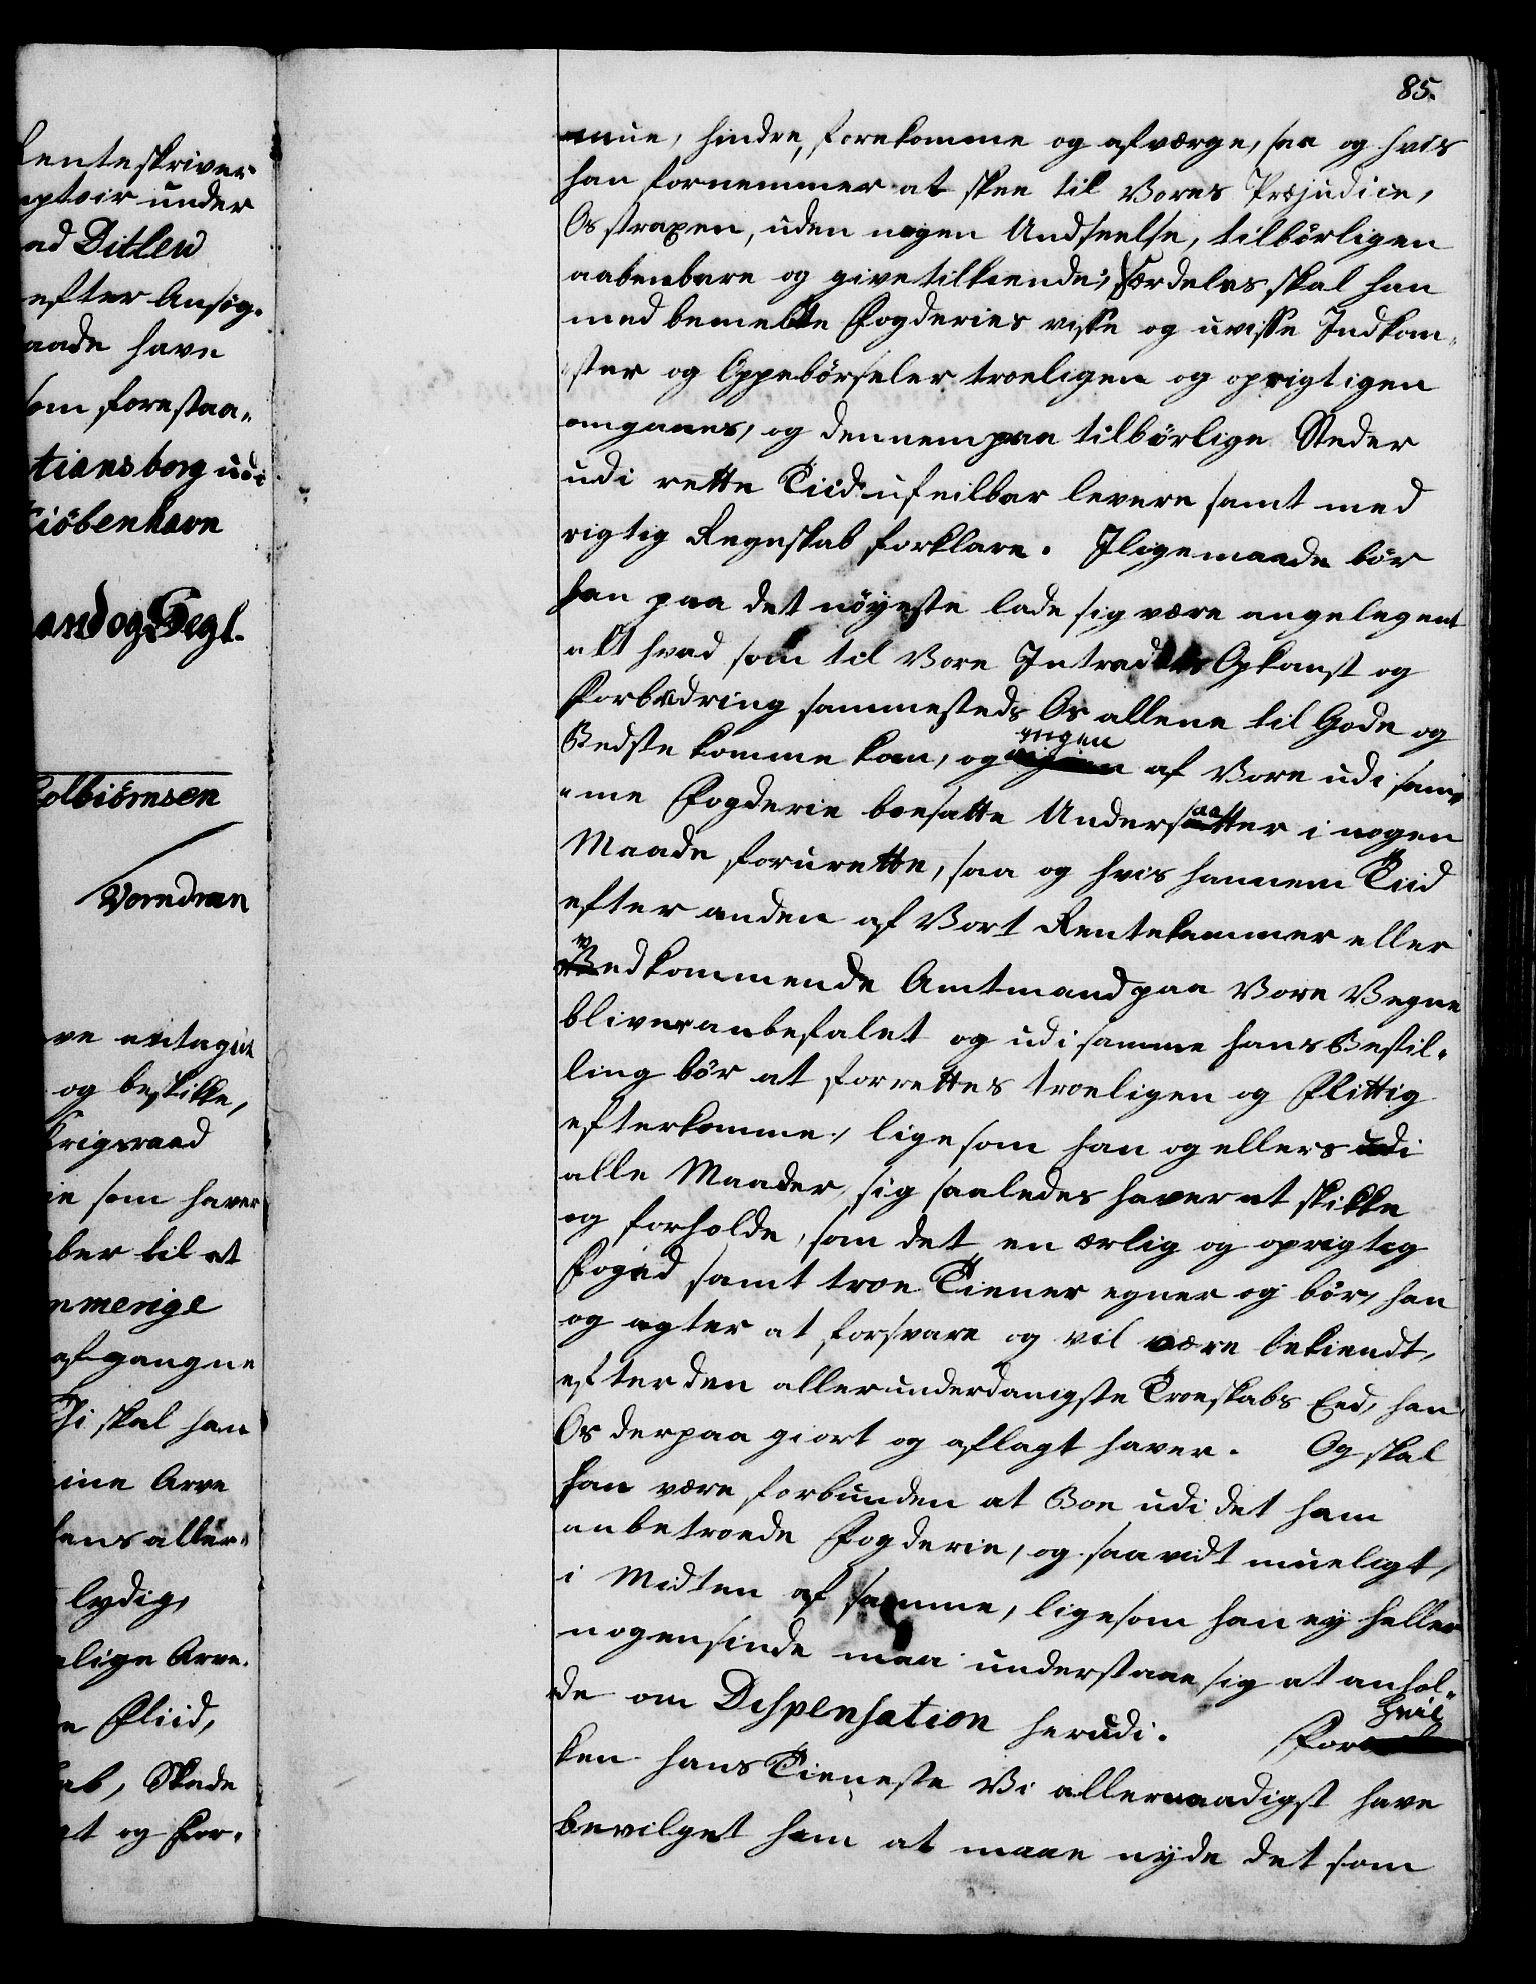 Renteskriver
ptoir under
ad Ditlev
efter Ansøg-
aade have
som forestaa-
tiansborg udi
Kiöbenhavn
aand og Segl.
Colbiörnsen
Vorndran
ve antaget
og beskikke,
Krigsraad
ie som haver
ber til at
nmerige
afgangne
Thi skal han
ine Arve
ens aller-
lydig,
elige Arve-
e Fliid,
ab, Skade
at og For-
85.
mue, hindre, forekomme og afværge, saa og hvis
han fornemmer at skee til Vores Præjudice,
Os straxen, uden nogen Undseelse, tilbörligen
aabenbare og give tilkiende; Særdeles skal han
med bemelte Fogderies visse og uvisse Indkom-
ster og Oppebörseler troeligen og oprigtigen
omgaaes, og dennem paa tilbørlige Steder
udi rette Tiid ufeilbar levere samt med
rigtig Regnskab forklare. Iligemaade bör
han paa det nöyeste lade sig være angelegent
alt hvad som til Vore Intraders Opkomst og
Forbedring sammesteds Os allene til Gode og
Bedste komme kan, og ingen af Vore udi sam-
me Fogderie boesatte Undersaatter i nogen
Maade forurette, saa og hvis hannem Tiid
efter anden af Vort Rentekammer eller
vedkommende Amtmand paa Vore Vegne
bliver anbefalet og udi samme hans Bestil-
ling bör at forrettes troeligen og flittig
efterkomme, ligesom han og ellers udi
alle Maader, sig saaledes haver at skikke
og forholde, som det en ærlig og oprigtig
Foged samt troe Tiener egner og bör, han
og agter at forsvare og vil være bekiendt,
efter den allerunderdanigste Troeskabs Eed, han
Os derpaa giort og aflagt haver. Og skal
han være forbunden at Boe udi det ham
anbetroede Fogderie, og saavidt mueligt,
i Midten af samme, ligesom han ey heller
nogensinde maa understaae sig at anhol-
de om Dispensation herudi. For hvil
ken hans Tieneste Vi allernaadigst have
bevilget ham at maae nyde det som